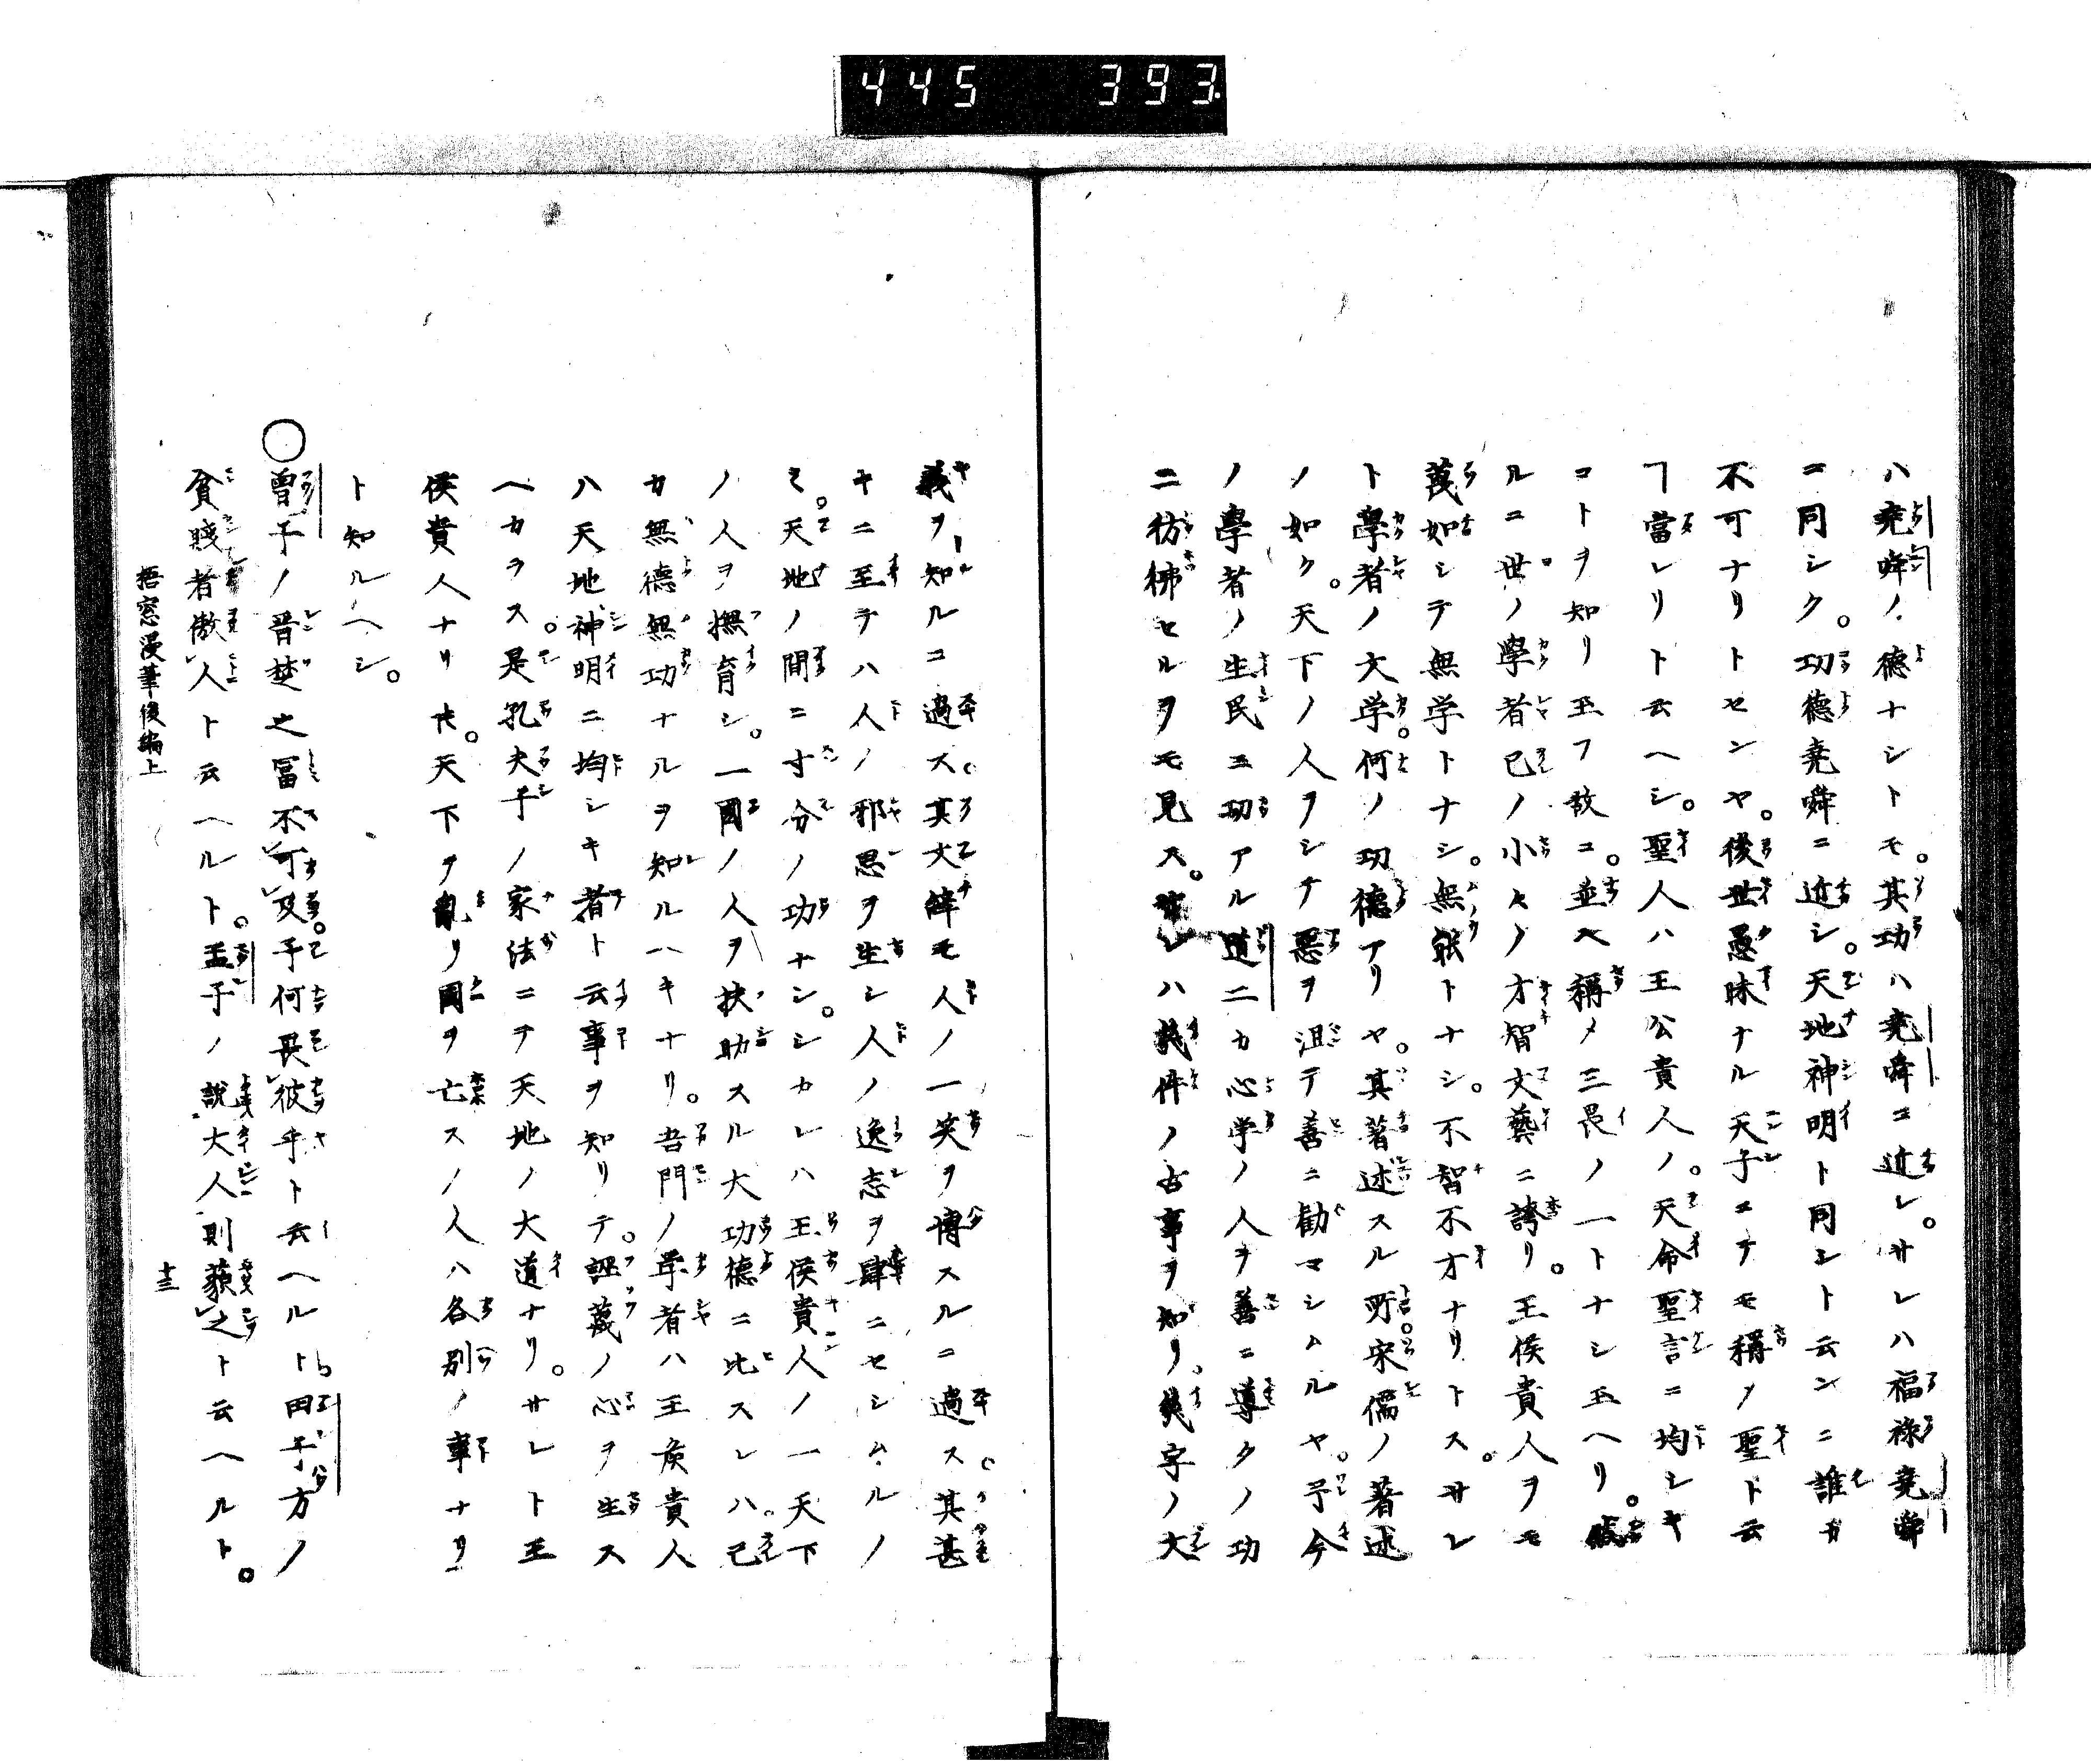 445 393
ハ堯舜ノ徳ナシトモ。其功ハ堯舜ニ近シ。サレハ福祿堯舜
ニ同シク。功德堯舜ニ近シ。天地神明ト同シト云ンニ誰カ
不可ナリトセンヤ。後世愚昧ナル天子ニテモ稱ノ聖ト云
ヿ當レリト云ヘシ。聖人ハ王公貴人ノ。天命聖言ニ均シキ
コトヲ知リ玉フ故ニ。並ヘ稱メ三畏ノ一トナシ玉ヘリ。
ルニ世ノ學者己ノ小々ノ才智文藝ニ誇リ。王侯貴人ヲモ
蔑如シテ無学トナシ。無能トナシ。不智不才ナリトス。サレ
ト學者ノ大学。何ノ功德アリヤ。其著述スル所。宋儒ノ著述
ノ如ク。天下ノ人ヲシテ惡ヲ沮テ善ニ勸マシムルヤ。予今
ノ學者ノ生民ニ功アル道二カ心学ノ人ヲ善ニ導クノ功
ニ彷彿セルヲモ見ス。レハ幾件ノ古事ヲ知リ。幾字ノ文
義ヲ知ルニ過ス。其大辯モ人ノ一笑ヲ博スルニ過ス。其甚
キニ至テハ人ノ邪思ヲ生シ人ノ逸志ヲ肆ニセシムルノ
ミ。天地ノ間ニ寸分ノ功ナシ。シカレハ王侯貴人ノ一天下
ノ人ヲ撫育シ。一國ノ人ヲ扶助スル大功德ニ比スレハ。己
カ無德無功ナルヲ知ルヘキナリ。吾門ノ学者ハ王侯貴人
ハ天地神明ニ均シキ者ト云事ヲ知リテ。誣蔑ノ心ヲ生ス
ヘカラス。是孔夫子ノ家法ニテ天地ノ大道ナリ。サレト王
侯貴人ナリ𪜈。天下ヲ亂リ國ヲ亡スノ人ハ各別ノ事ナリ
ト知ルヘシ。
〇曾子ノ晋楚之冨不可及。予何畏彼乎ト云ヘルト田子方ノ
貧賤者傲人ト云ヘルト。孟子ノ說大人則藐之ト云ヘルト。
梧窓漫筆後編上
十三